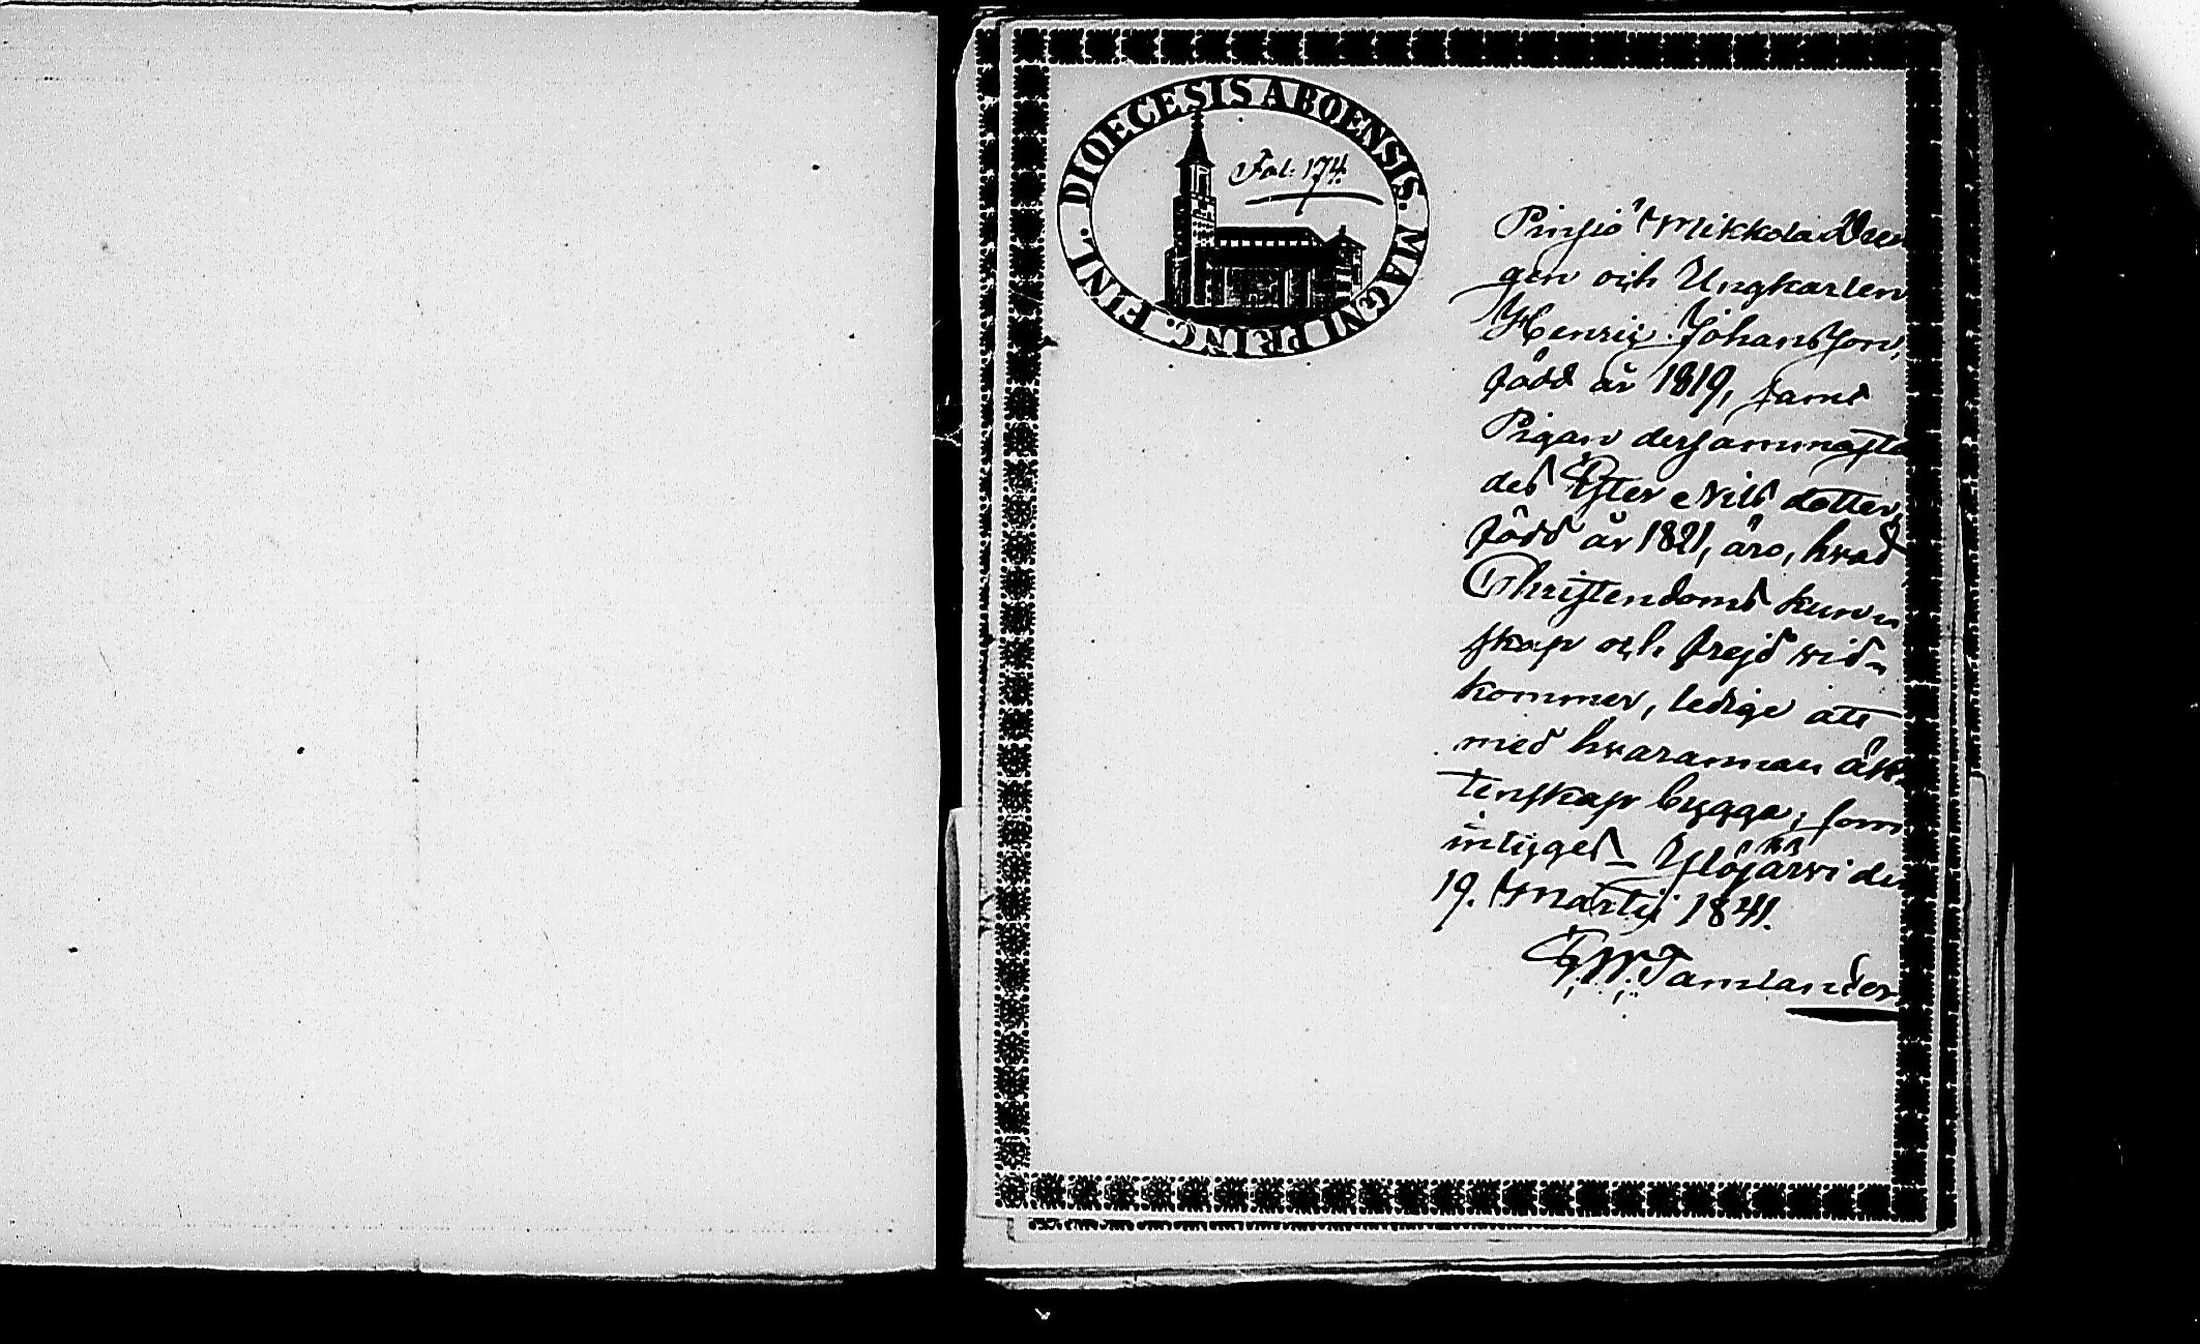 DIOECESIS ABOENSIS. MAGNI PRINC. FINL.
Fol: 174.
Pinsiö Mikkola Dren
gen och Ungkarlen
Henric Johansson,
född år 1819, samt
Pigan dersammasta
des Ester Nils dotter,
född år 1821, äro, hvad
Christendoms kunn
skap och frejd vid-
kommer, ledige att
med hvarannan äk-
tenskap bygga; som
intygges_ Ylöjärvi den
19. Martii 1841.
F. W. Tamlander